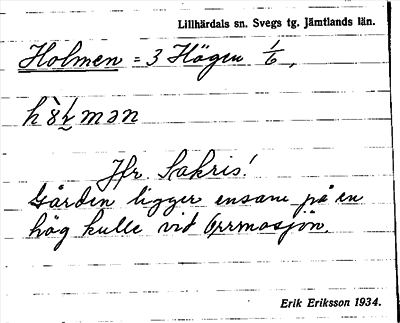 Lillhärdals sn. Svegs tg. Jämtlands län.
Holmen = 3 Högen 1/6,
Jfr. Sakris!
Gården ligger ensam på en
hög kulle vid Orrmosjön.
Erik Eriksson 1934.